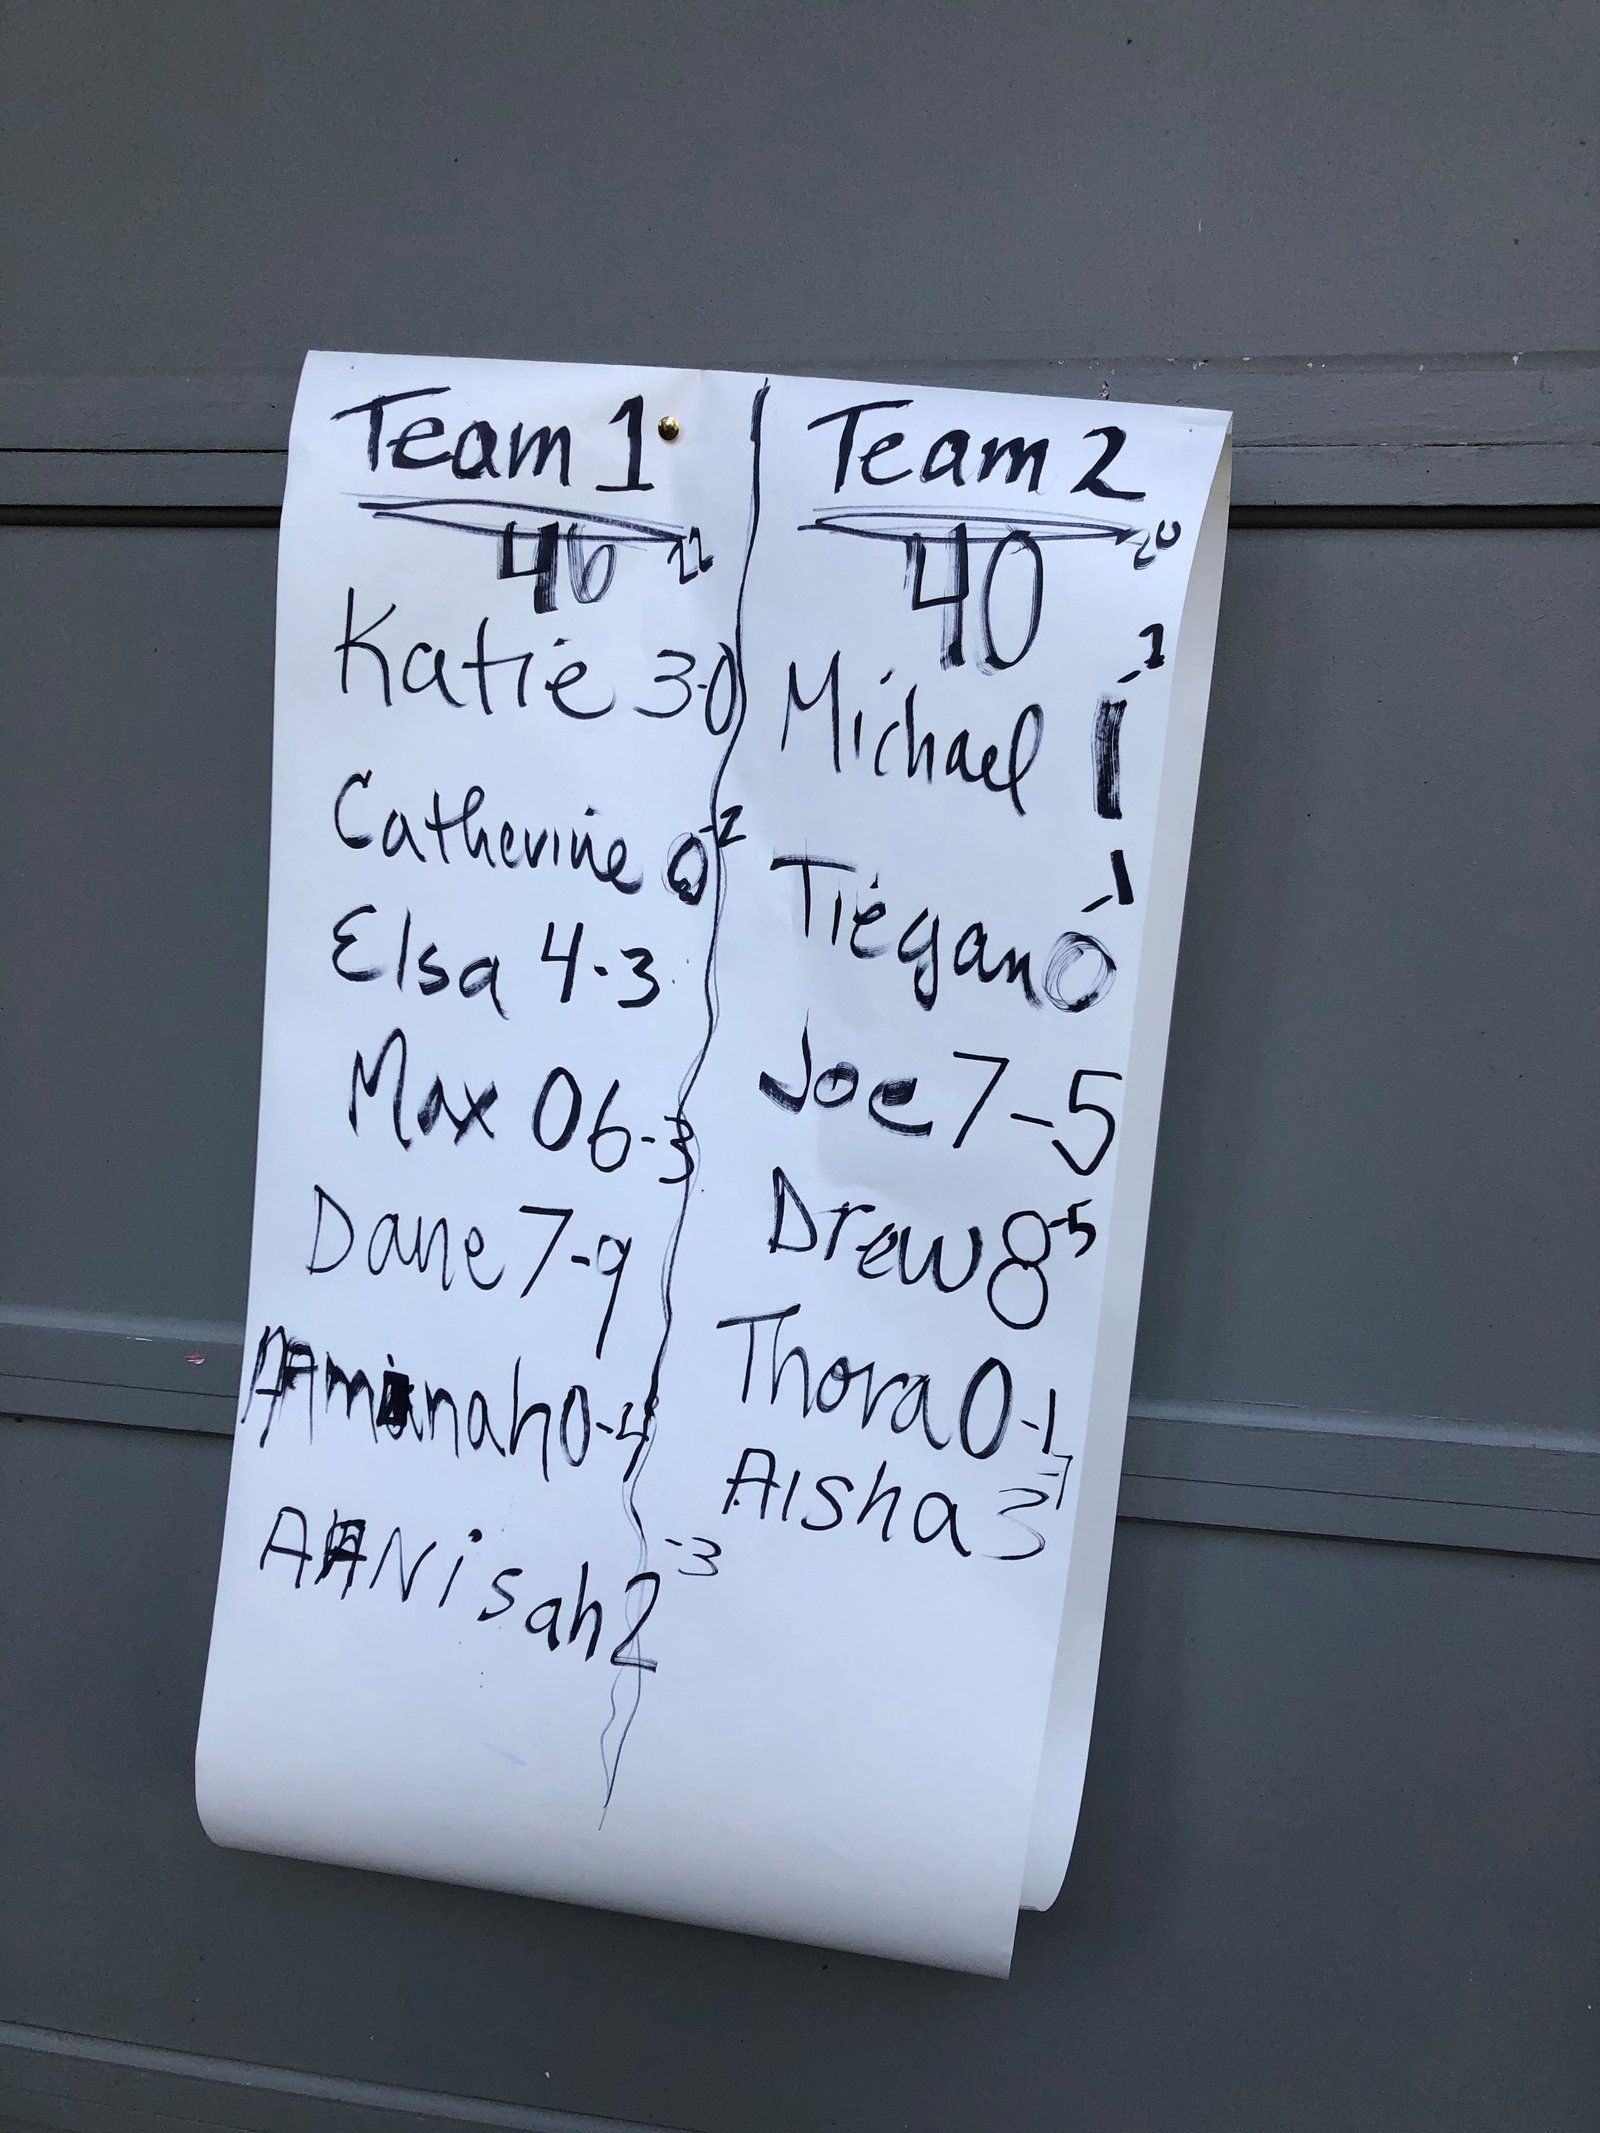 Team 1
46 22
Katie 3-0
Catherine 0-2
Elsa 4-3
Max 06-3
Dane 7-9
Aminah 0-4
Anisah 2-3
Team 2
40 20
Michael 1-1
Tiegan 0-1
Joe 7-5
Drew 8-5
Thora 0-1
Aisha 3-7